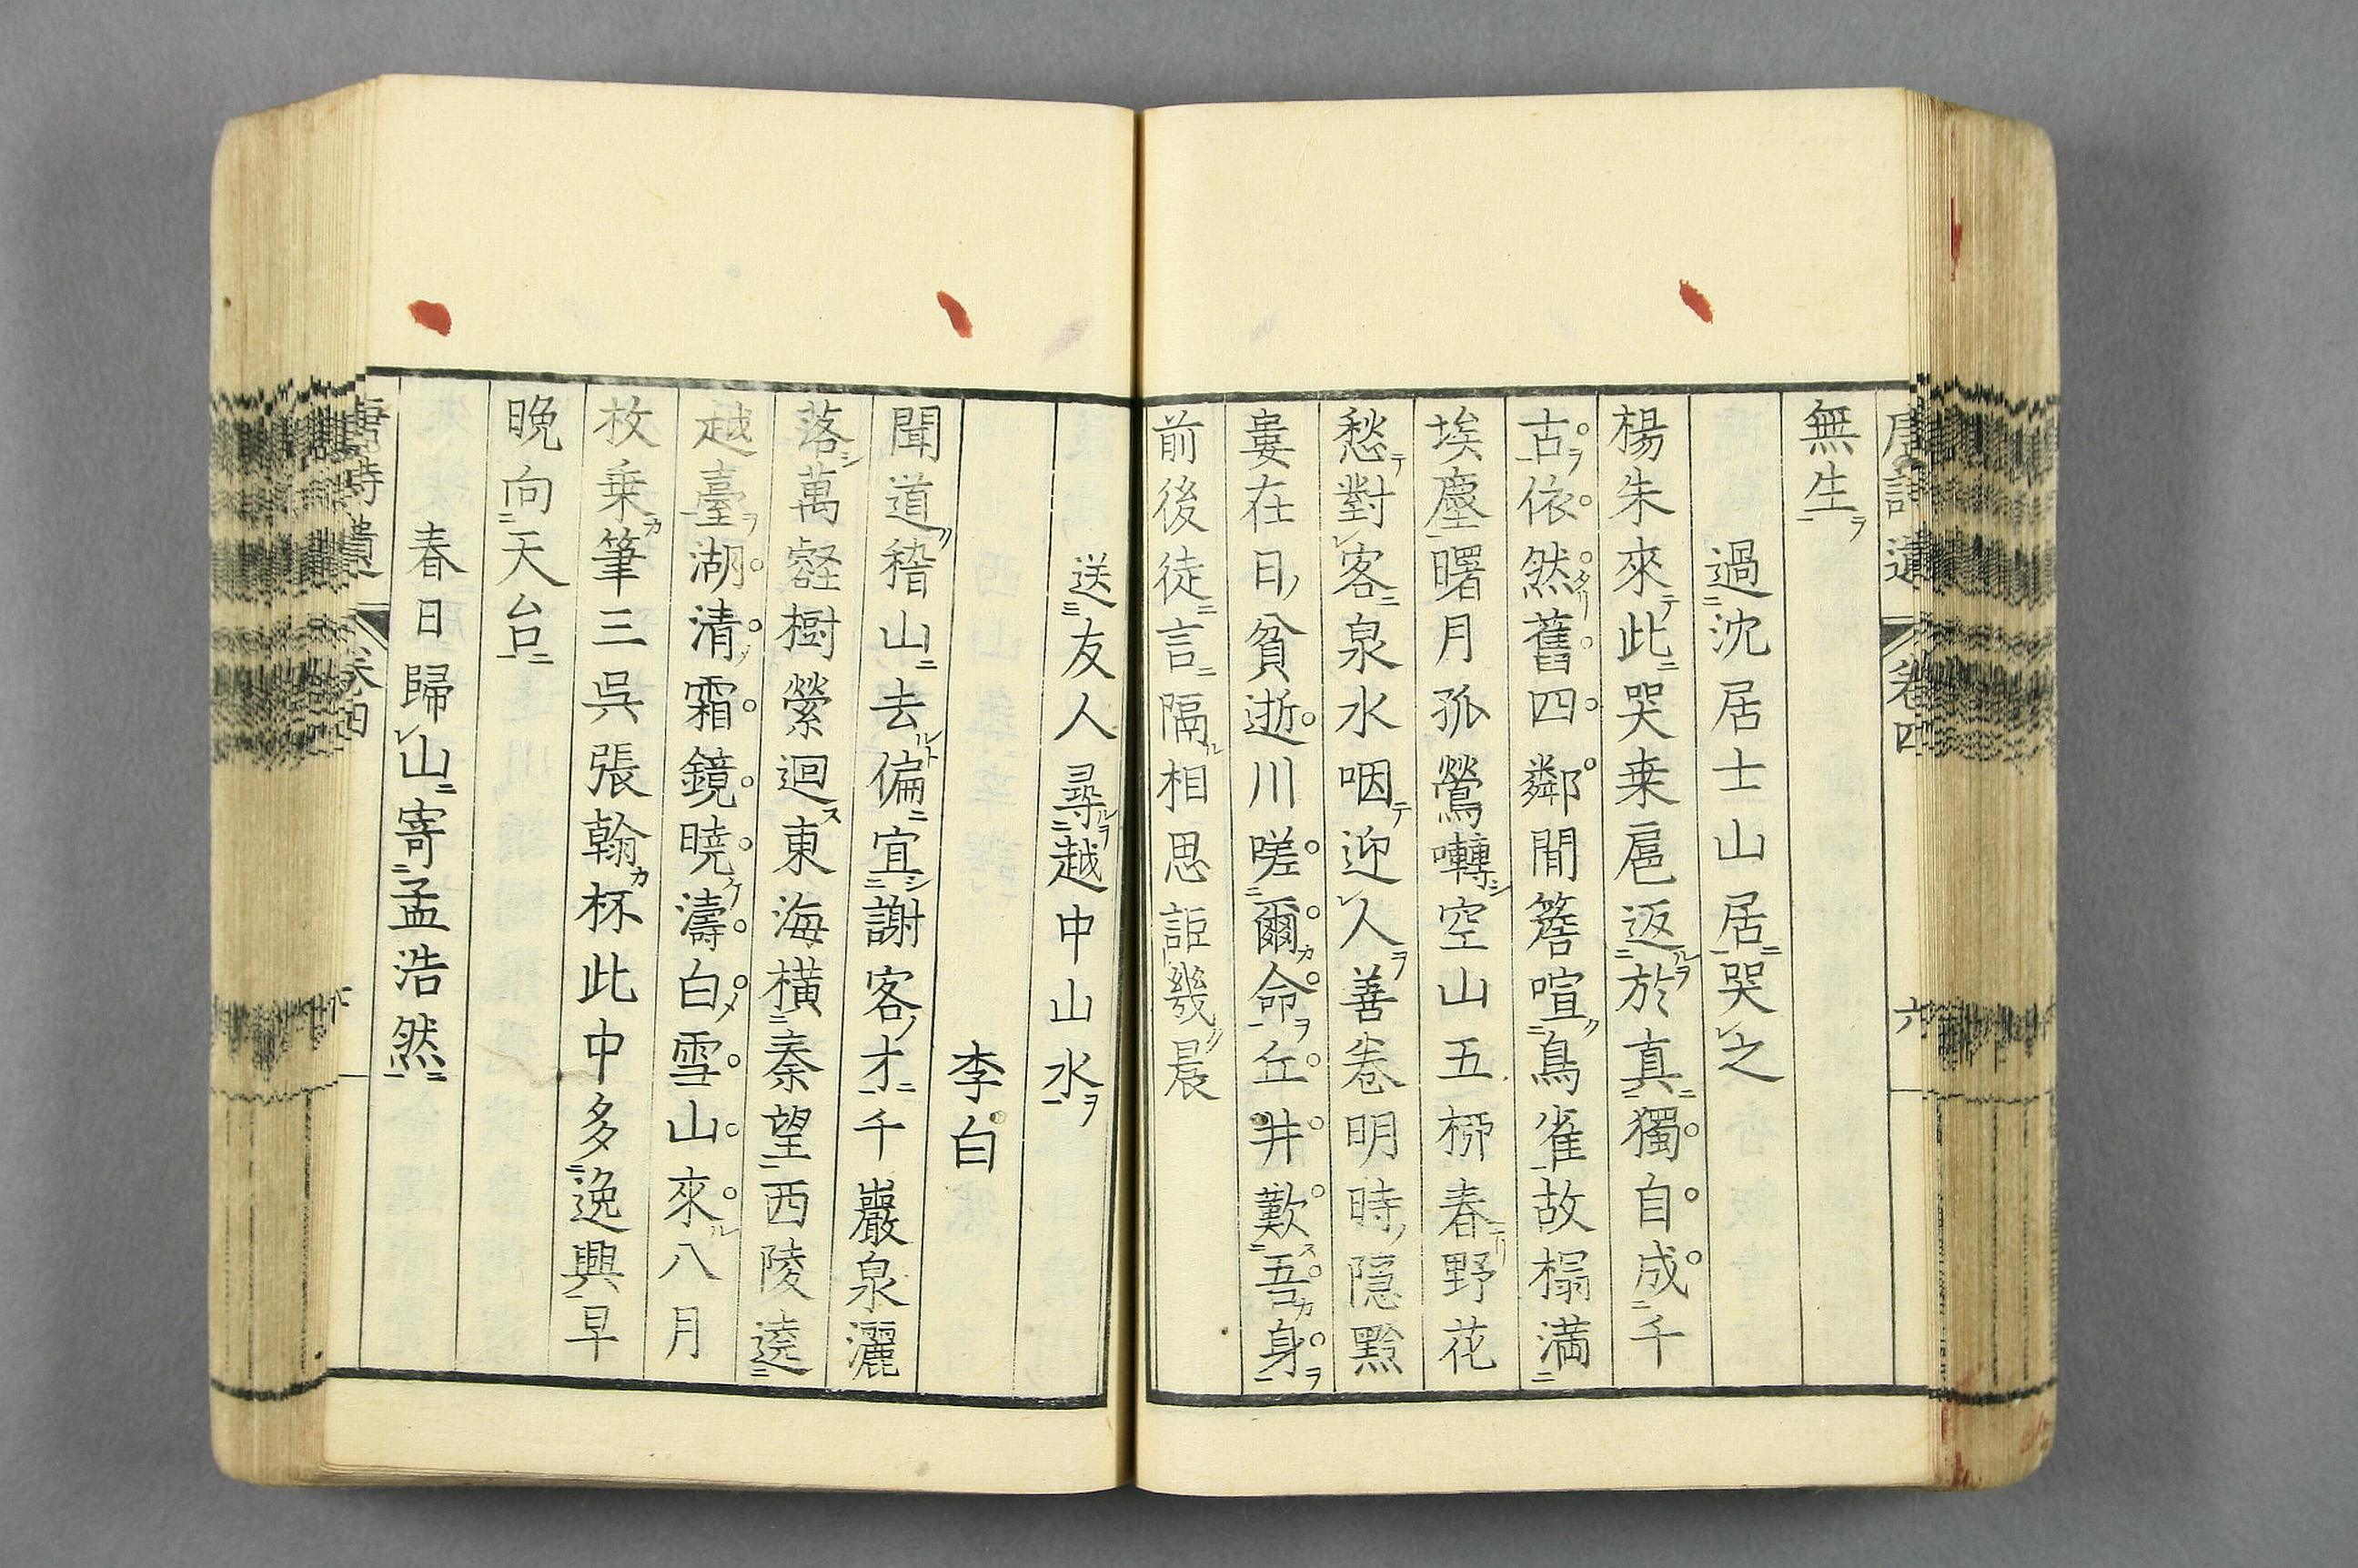 卷四
六
無生
過沈居士山居哭之
楊朱來此哭桒扈返於真獨自成千
古依然舊四鄰閒簷喧鳥雀故榻満
埃塵曙月孤鶯囀空山五栁春野花
愁對客泉水咽迎人善卷明時隠黔
婁在日貧逝川嗟爾命丘井歎吾身
前後徒言隔相思詎幾晨
送友人尋越中山水
李白
聞道稽山去偏宜謝客才千巖泉灑
落萬壑樹縈迴東海橫秦望西陵遶
越臺湖清霜鏡曉濤白雪山來八月
枚乗筆三呉張翰杯此中多逸興早
晚向天台
春日歸山寄孟浩然